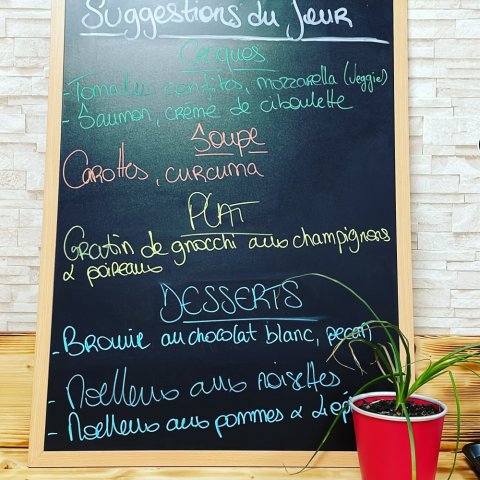 Suggestions du Jour
Croques
- Tomates confites, mozzarella (veggie)
- Saumon, crème de ciboulette
Soupe
Carottes, curcuma
PLAT
Gratin de gnocchi aux champignons
& poireaux
DESSERTS
- Brownie au chocolat blanc, pecan
- Moelleux aux noisettes
- Moelleux aux pommes &